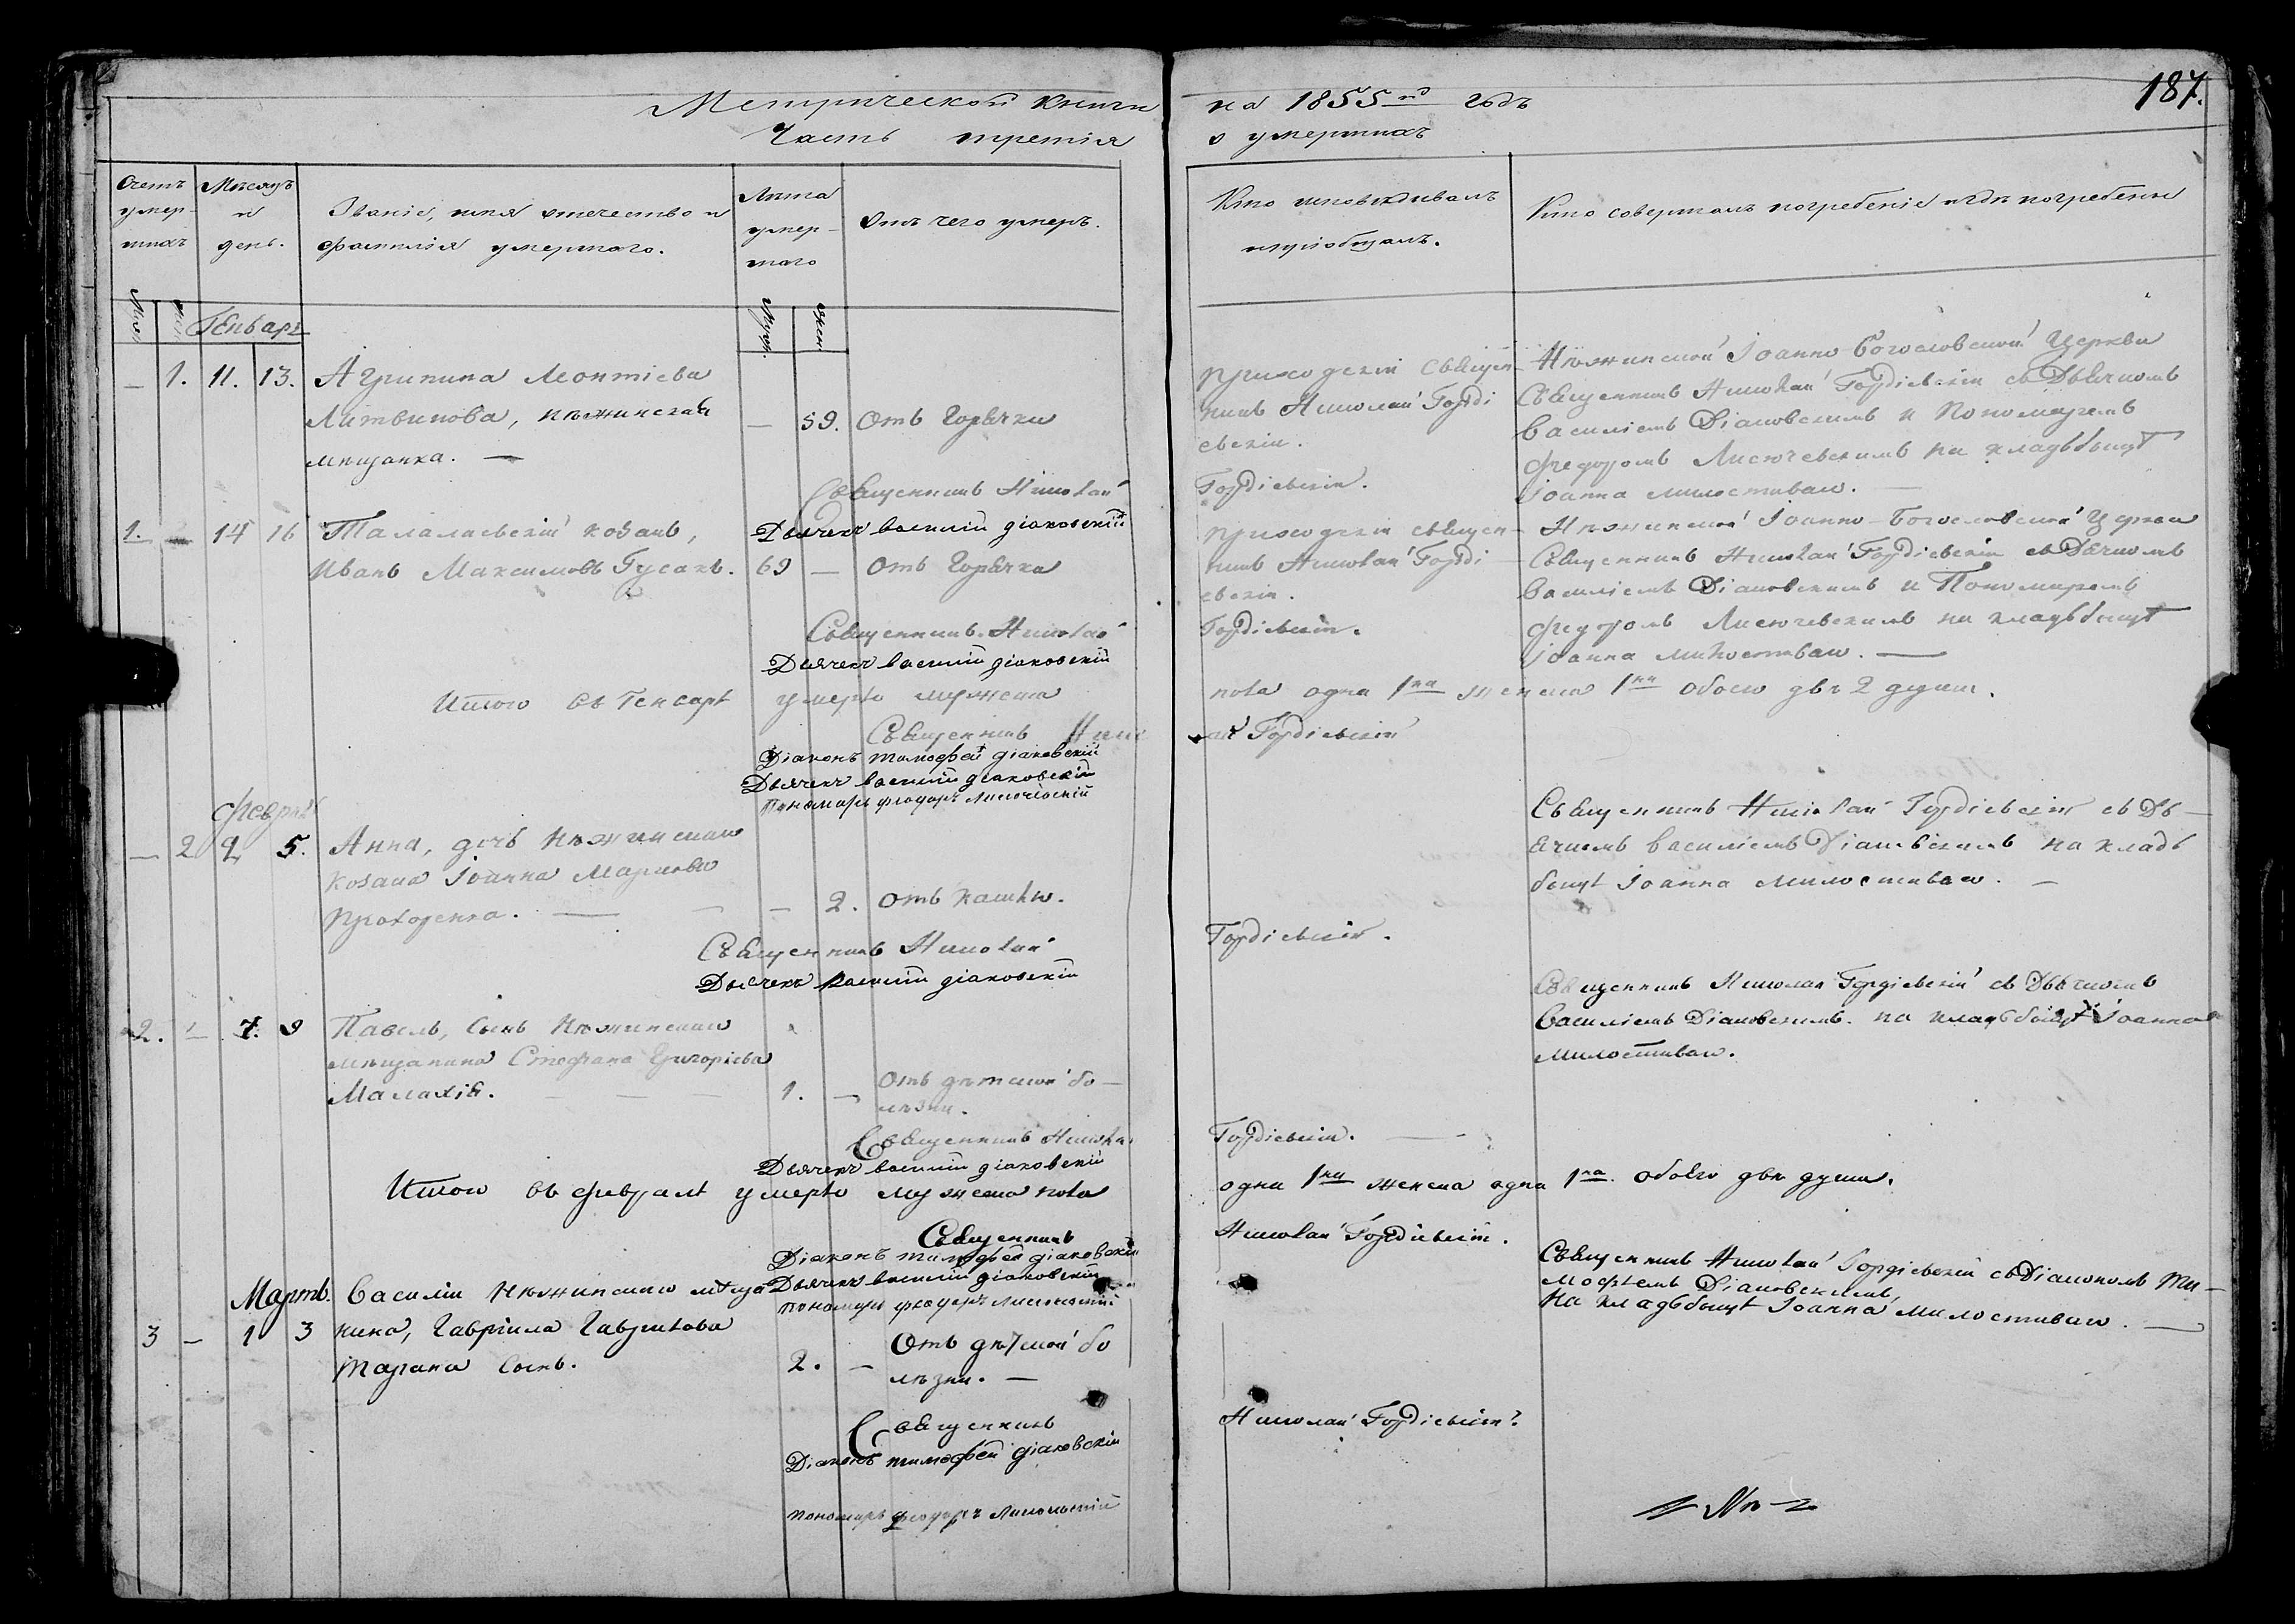 187.
Метрической книги на 1855й годъ
Часть третія о умершихъ
Счетъ умер-шихъ
Мѣсяцъ и день.
Званіе, имя отечество и фамилія умершаго.
Лѣта умер-шаго
Отъ чего умеръ.
Кто исповѣдывалъ и пріобщалъ.
Кто совершалъ погребеніе и гдѣ погребены
Муж. Жен.
Генварь
— 1. 11. 13. Агрипина Леонтіева
Литвинова, нѣжинская — 59. Отъ Горячки
мѣщанка. —
Приходскій Священ-
никъ Николай Горді
евскій.
Нѣжинской Іоанно Богословской Церкви
Священникъ Николай Гордіевскій съ Дьячкомъ
Василіемъ Діаковскимъ и Пономаремъ
Федоромъ Лисючевскимъ на кладбищѣ
Іоанна милостиваго. —
Священникъ Николай Гордіевскій.
Дьячекъ Василій Діаковскій
1. — 14 16 Талалаевскій козакъ,
Иванъ Максимовъ Гусакъ. 69 — Отъ Горячки
Приходскій Священ-
никъ Николай Горді
евскій.
Нѣжинской Іоанно-Богословской Церкви
Священникъ Николай Гордіевскій съ Дьячкомъ
Василіемъ Діаковскимъ и Пономаремъ
Федоромъ Лисючевскимъ на кладбищѣ
Іоанна милостиваго. —
Священникъ Николай Гордіевскій.
Дьячекъ Василій Діаковскій
Итого въ Генварѣ умерло мужеска пола одна 1на женска 1на обоего двѣ 2 души.
Священникъ Николай Гордіевскій
Діаконъ Тимофей Діаковскій
Дьячекъ Василій Діаковскій
Пономарь Феодоръ Лисючевскій
Февраль
— 2 2 5. Анна, дочь Нѣжинскаго
козака Іоанна Маркова
Прохоренка. — — — 2. Отъ кашлю.
Священникъ Николай Гордіевскій съ Дь-
ячкомъ Василіемъ Діаковскимъ на клад
бищѣ Іоанна Милостиваго. —
Священникъ Николай Гордіевскій.
Дьячекъ Василій Діаковскій
2. — 7. 9 Павелъ, Сынъ Нѣжинскаго
мѣщанина Стефана Григоріева
Малахія. — — — 1. — Отъ дѣтской бо-
лѣзни.
Священникъ Николай Гордіевскій съ Дьячкомъ
Василіемъ Діаковскимъ. на кладбищѣ Іоанна
Милостиваго.
Священникъ Николай Гордіевскій. —
Дьячекъ Василій Діаковскій
Итого въ Февралѣ умерло мужеска пола одна 1на женска одна 1на. обоего двѣ души.
Священникъ Николай Гордіевскій.
Діаконъ Тимофей Діаковскій
Дьячекъ Василій Діаковскій
Пономарь Феодоръ Лисючевскій
Мартъ.
3 — 1 3 Василій Нѣжинскаго мѣща
нина, Гавріила Гаврилова
Тарана Сынъ. 2. — Отъ дѣтской бо
лѣзни. —
Священникъ Николай Гордіевскій съ Діакономъ Ти-
мофеемъ Діаковскимъ,
на кладбищѣ Іоанна милостиваго. —
Священникъ Николай Гордіевскій.
Діаконъ Тимофей Діаковскій
Пономарь Феодоръ Лисючевскій